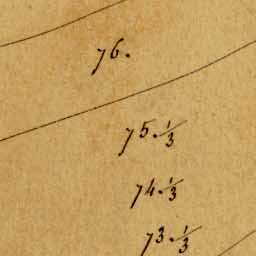 76.
75.⅓
74.⅓
73.⅓